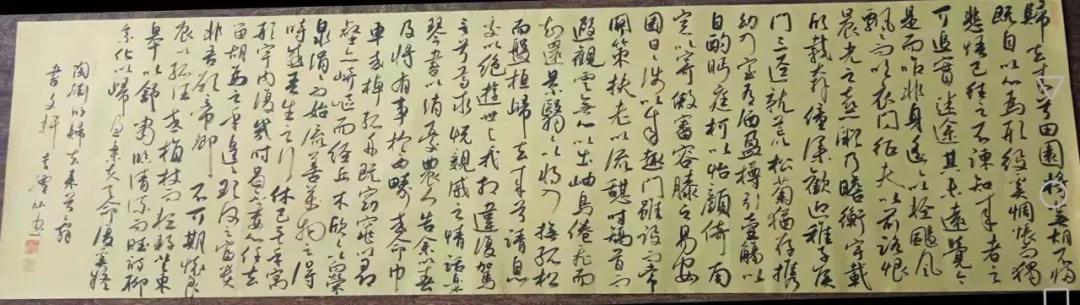 歸去来兮田園將蕪胡不歸
既自以心為形役奚惆悵而獨
悲悟已往之不諫知来者之
可追實迷途其未遠覺今
是而昨非舟遥遥以輕颺風
飄飄而吹衣問征夫以前路恨
晨光之熹微乃瞻衡宇載
欣載奔僮僕歡迎稚子候
門三徑就荒松菊猶存攜
幼入室有酒盈樽引壺觴以
自酌眄庭柯以怡顏倚南
窗以寄傲審容膝之易安
園日涉以成趣門雖設而常
關策扶老以流憩時矯首而
遐觀雲無心以出岫鳥倦飛而
知還景翳翳以將入撫孤松
而盤桓歸去来兮請息
交以絶遊世與我相違復駕
言兮焉求悦親戚之情話樂
琴書以消憂農人告余以春
及將有事於西疇或命巾
車或棹孤舟既窈窕以尋
壑亦崎嶇而經丘木欣欣以向榮
泉涓涓而始流善萬物之得
時感吾生之行休已矣乎寓
形宇内復幾時曷不委心任去
留胡為乎遑遑欲何之富貴
非吾願帝鄉不可期懷良
辰以孤往或植杖而耘耔登東
皋以舒嘯臨清流而賦詩聊
乘化以歸盡樂夫天命復奚疑
陶淵明歸去来兮辭
書文軒